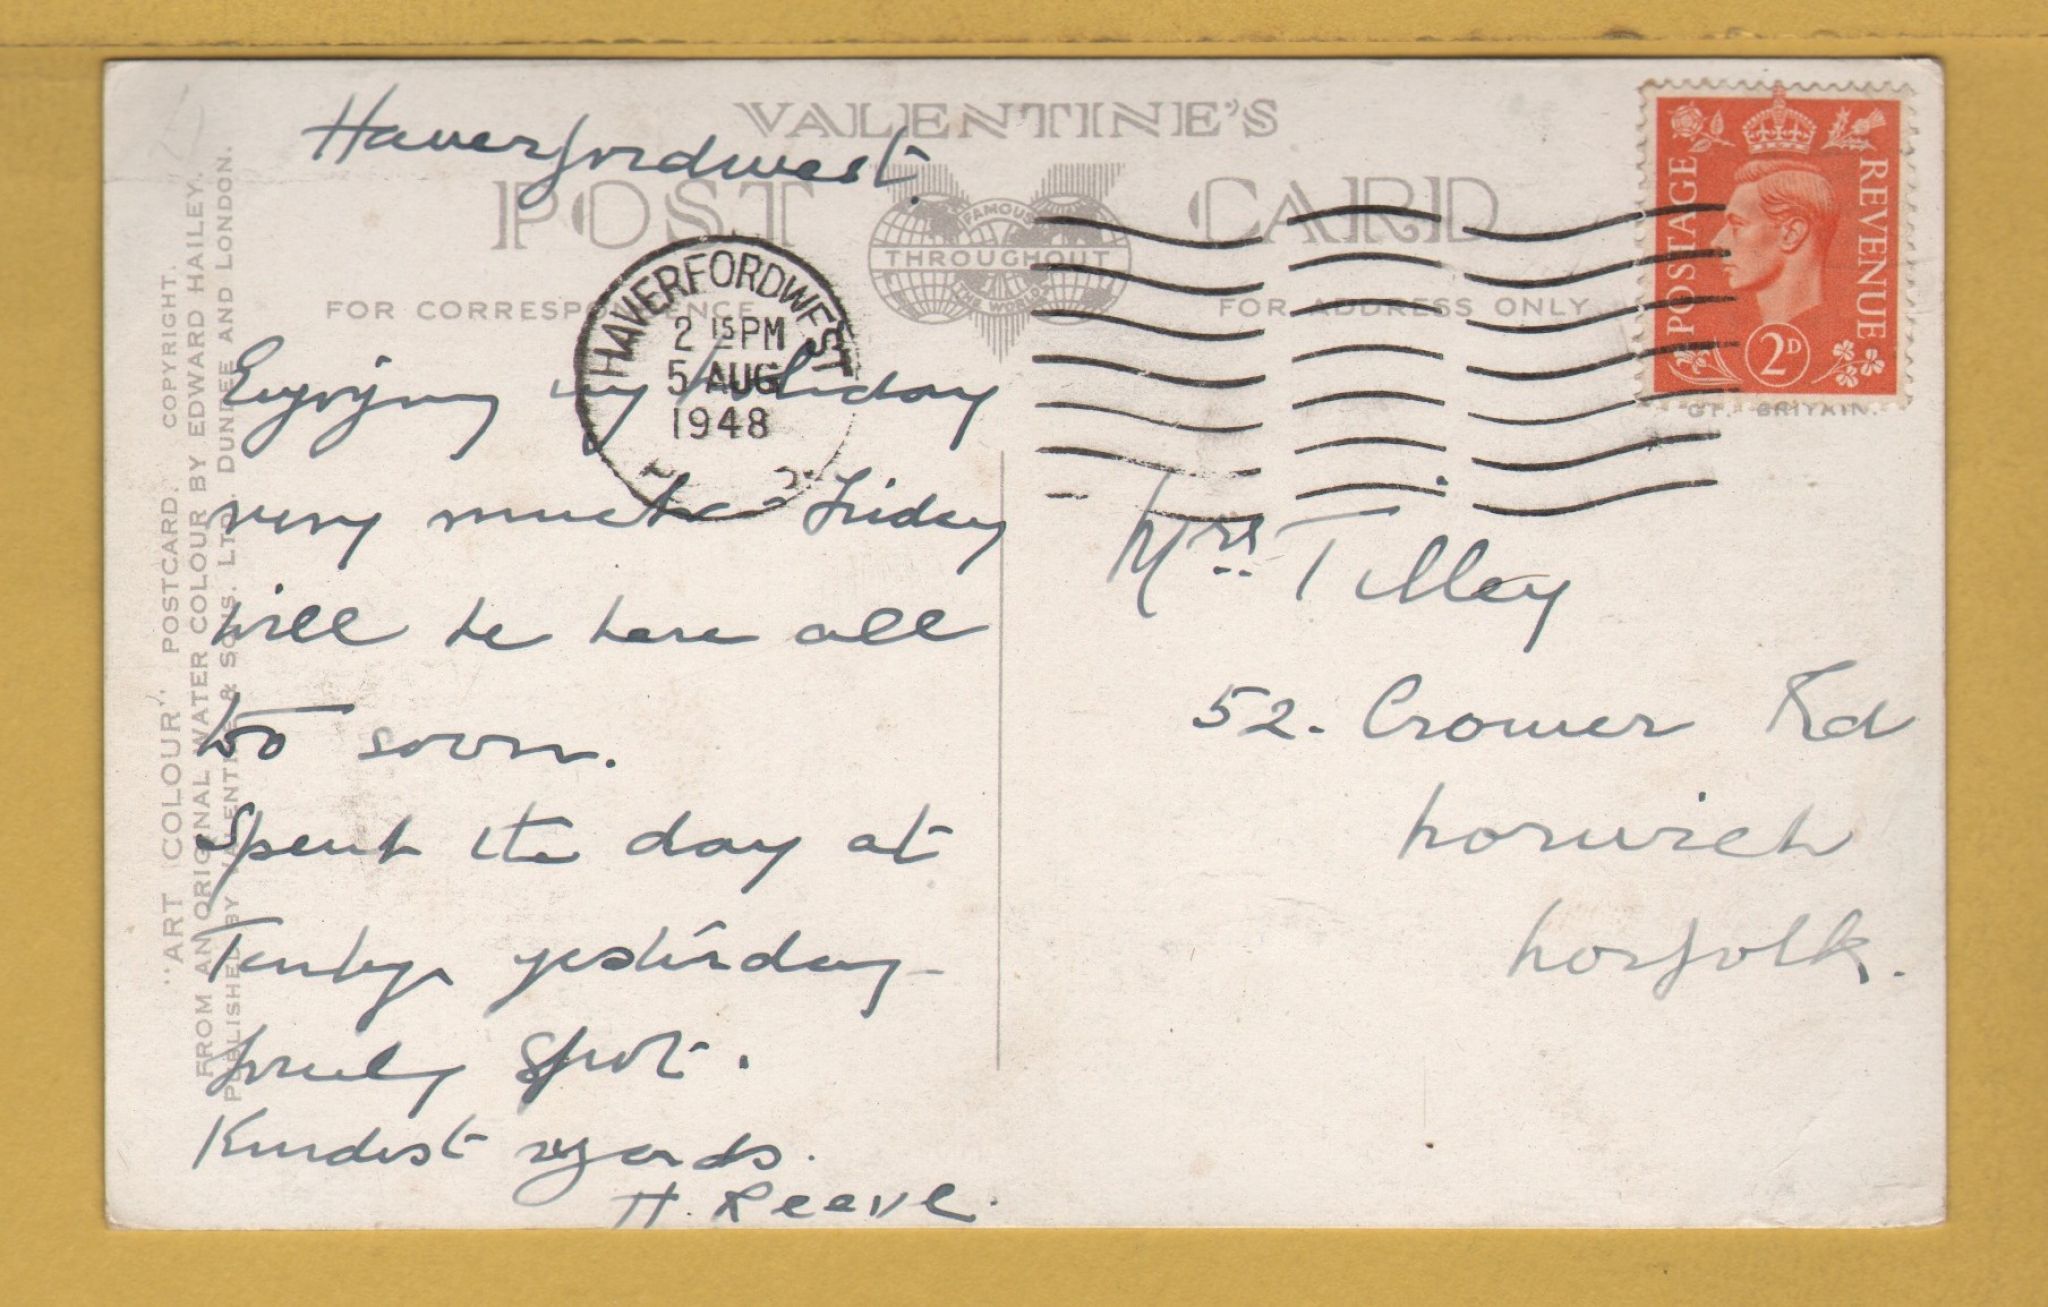 VALENTINE'S
POST CARD
FAMOUS
THROUGHOUT
THE WORLD
FOR CORRESPONDENCE
FOR ADDRESS ONLY
POSTAGE
REVENUE
2D
GT. BRITAIN.
HAVERFORDWEST
2 15 PM
5 AUG
1948
Haverfordwest.
Enjoying my holiday
very much - Friday
will be here all
too soon.
Spent the day at
Tenby yesterday -
lovely spot.
Kindest regards.
H. Reeve.
Mrs. Tilley
52. Cromer Rd
Norwich
Norfolk.
"ART COLOUR". POSTCARD. COPYRIGHT.
FROM AN ORIGINAL WATER COLOUR BY EDWARD HAILEY.
PUBLISHED BY VALENTINE & SONS. LTD. DUNDEE AND LONDON.